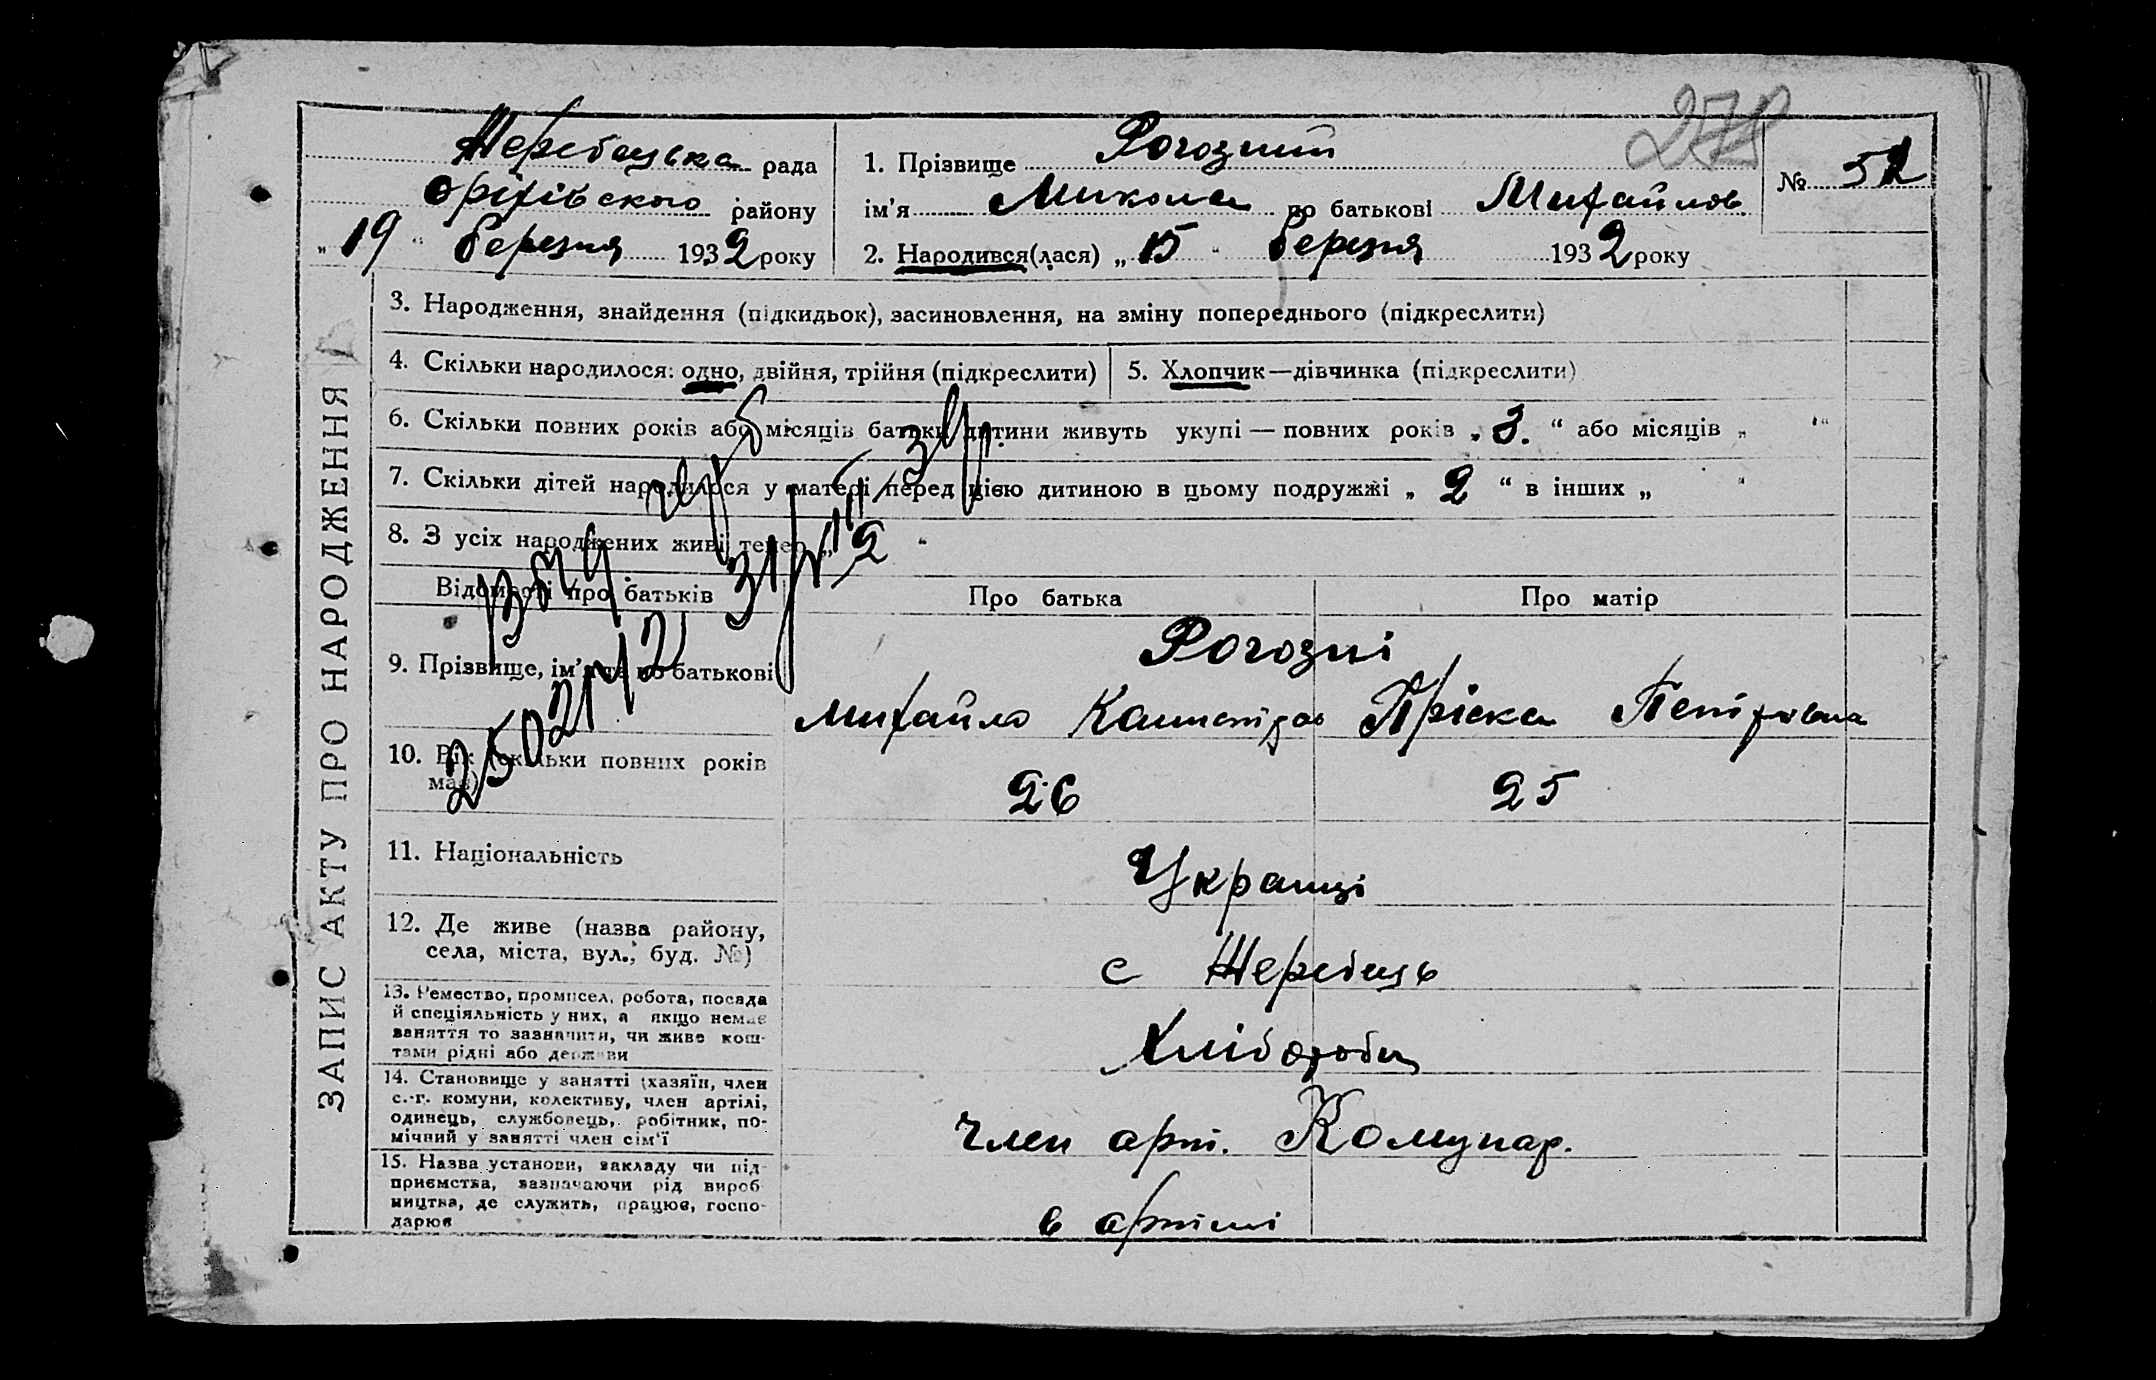 278
Жеребецька рада
Оріхівського району
„ 19 “ березня 1932 року
1. Прізвище Рогозний
ім’я Микола по батькові Михайлов.
2. Народився(лася) „ 15 “ березня 1932 року
№ 52
ЗАПИС АКТУ ПРО НАРОДЖЕННЯ
3. Народження, знайдення (підкидьок), засиновлення, на зміну попереднього (підкреслити)
4. Скільки народилося: одно, двійня, трійня (підкреслити)
5. Хлопчик—дівчинка (підкреслити)
6. Скільки повних років або місяців батьки дитини живуть укупі — повних років „ 3. “ або місяців „ “
7. Скільки дітей народилося у матері перед цією дитиною в цьому подружжі „ 2 “ в інших „ “
8. З усіх народжених живі тепер „ 2 “
Відомості про батьків
Про батька
Про матір
9. Прізвище, ім’я та по батькові
Рогозні
Михайло
Пріска Петрівна
10. Вік (скільки повних років має)
26
25
11. Національність
Украінці
12. Де живе (назва району, села, міста, вул., буд. №)
с Жеребець
13. Ремество, промисел, робота, посада й спеціяльність у них, а якщо немає заняття то зазначити, чи живе коштами рідні або держави
Хлібороби
14. Становище у занятті (хазяїн, член с.-г. комуни, колективу, член артілі, одинець, службовець, робітник, помічний у занятті член сім’ї
член арт. Комунар.
15. Назва установи, закладу чи підприємства, зазначаючи рід виробництва, де служить, працює, господарює
в артілі